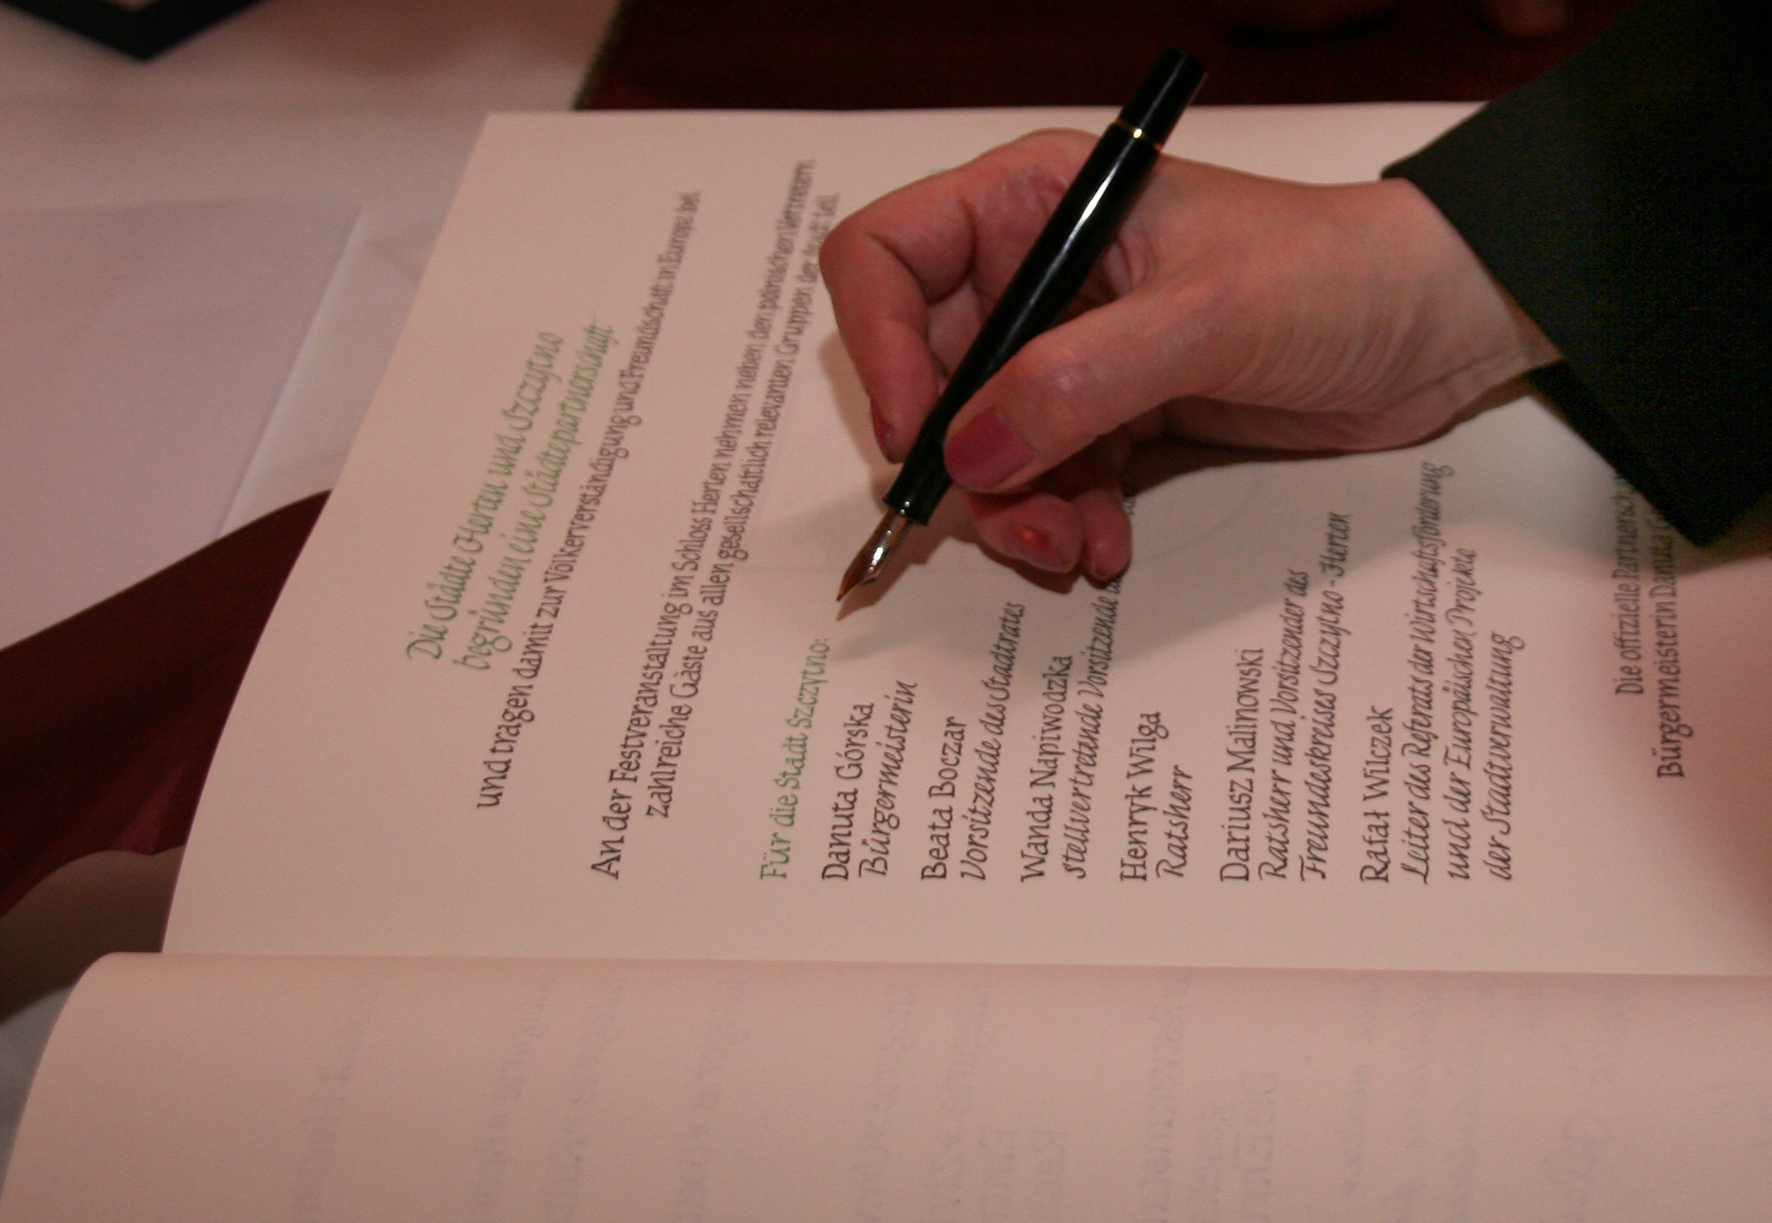 Die Städte Herten und Szczytno
begründen eine Städtepartnerschaft
und tragen damit zur Völkerverständigung und Freundschaft in Europa bei.
An der Festveranstaltung im Schloss Herten nehmen neben den polnischen Vertretern
zahlreiche Gäste aus allen gesellschaftlich relevanten Gruppen der Stadt teil.
Für die Stadt Szczytno:
Danuta Górska
Bürgermeisterin
Beata Boczar
Vorsitzende des Stadtrates
Wanda Napiwodzka
stellvertretende Vorsitzende
Henryk Wilga
Ratsherr
Dariusz Malinowski
Ratsherr und Vorsitzender des
Freundeskreises Szczytno - Herten
Rafał Wilczek
Leiter des Referats der Wirtschaftsförderung
und der Europäischen Projekte
der Stadtverwaltung
Die offizielle Partnersch
Bürgermeisterin Danuta G